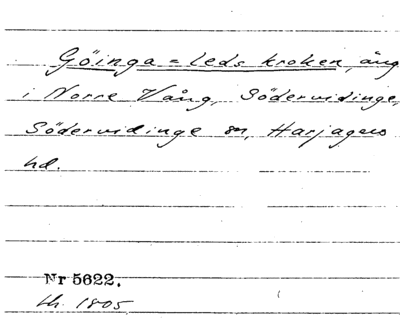 Göinga = Leds kroken, äng
i Norre Vång, Södervidinge,
Södervidinge sn, Harjagers
hd.
Nr 5622.
th. 1805